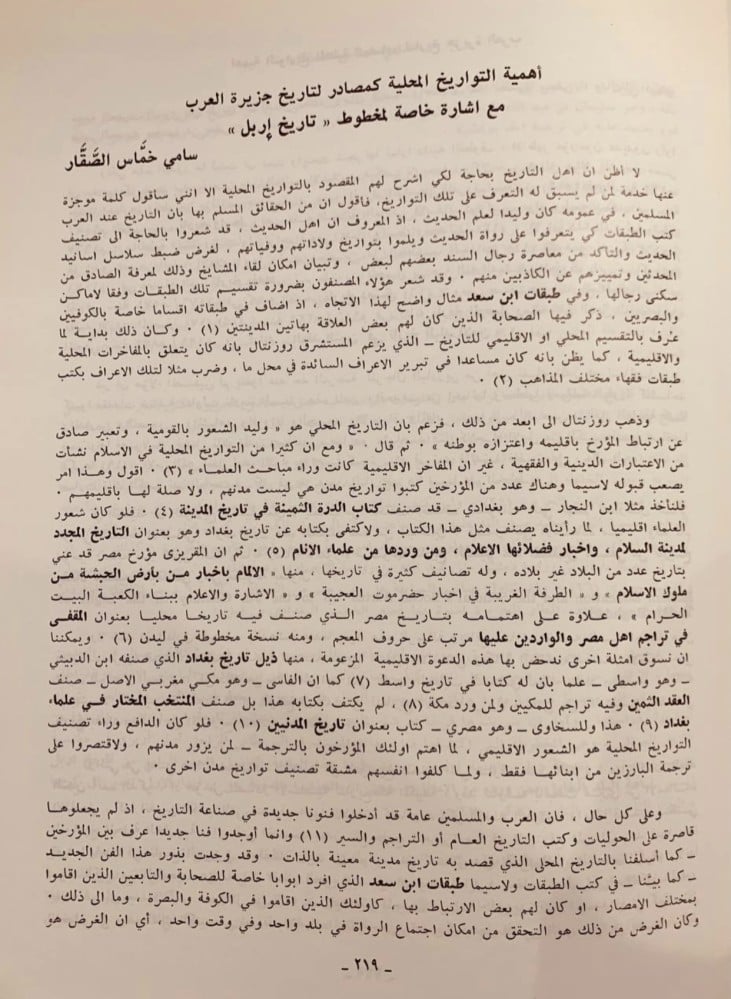 أهمية التواريخ المحلية كمصادر لتاريخ جزيرة العرب
مع اشارة خاصة لمخطوط « تاريخ إربل »
سامي خمَّاس الصَّقَّار
لا أظن ان اهل التاريخ بحاجة لكي اشرح لهم المقصود بالتواريخ المحلية الا انني سأقول كلمة موجزة
عنها خدمة لمن لم يسبق له التعرف على تلك التواريخ، فاقول ان من الحقائق المسلم بها بأن التاريخ عند العرب
المسلمين ، في عمومه كان وليدا لعلم الحديث ، اذ المعروف ان اهل الحديث ، قد شعروا بالحاجة الى تصنيف
كتب الطبقات كي يتعرفوا على رواة الحديث ويلموا بتواريخ ولاداتهم ووفياتهم ، لغرض ضبط سلاسل اسانيد
الحديث والتاكد من معاصرة رجال السند بعضهم لبعض ، وتبيان امكان لقاء المشايخ وذلك لمعرفة الصادق من
المحدثين وتمييزهم عن الكاذبين منهم ٠ وقد شعر هؤلاء المصنفون بضرورة تقسيم تلك الطبقات وفقا لاماكن
سكنى رجالها ، وفي طبقات ابن سعد مثال واضح لهذا الاتجاه ، اذ اضاف في طبقاته اقساما خاصة بالكوفيين
والبصريين ، ذكر فيها الصحابة الذين كان لهم بعض العلاقة بهاتين المدينتين (١) ٠ وكان ذلك بداية لما
عُرف بالتقسيم المحلي او الاقليمي للتاريخ ــ الذي يزعم المستشرق روزنتال بانه كان يتعلق بالمفاخرات المحلية
والاقليمية ، كما يظن بانه كان مساعدا في تبرير الاعراف السائدة في محل ما ، وضرب مثلا لتلك الاعراف بكتب
طبقات فقهاء مختلف المذاهب (٢) ٠
وذهب روزنتال الى ابعد من ذلك ، فزعم بان التاريخ المحلي هو « وليد الشعور بالقومية ، وتعبير صادق
عن ارتباط المؤرخ باقليمه واعتزازه بوطنه » ٠ ثم قال ٠ « ومع ان كثيرا من التواريخ المحلية في الاسلام نشأت
من الاعتبارات الدينية والفقهية ، غير ان المفاخر الاقليمية كانت وراء مباحث العلماء » (٣) ٠ اقول وهذا امر
يصعب قبوله لاسيما وهناك عدد من المؤرخين كتبوا تواريخ مدن هي ليست مدنهم ، ولا صلة لها باقليمهم ٠
فلنأخذ مثلا ابن النجار ــ وهو بغدادي ــ قد صنف كتاب الدرة الثمينة في تاريخ المدينة (٤) ٠ فلو كان شعور
العلماء اقليميا ، لما رأيناه يصنف مثل هذا الكتاب ، ولاكتفى بكتابه عن تاريخ بغداد وهو بعنوان التاريخ المجدد
لمدينة السلام ، واخبار فضلائها الاعلام ، ومن وردها من علماء الانام (٥) ٠ ثم ان المقريزى مؤرخ مصر قد عني
بتاريخ عدد من البلاد غير بلاده ، وله تصانيف كثيرة في تاريخها ، منها « الالمام باخبار من بارض الحبشة من
ملوك الاسلام » و « الطرفة الغريبة في اخبار حضرموت العجيبة » و « الاشارة والاعلام ببناء الكعبة البيت
الحرام » ، علاوة على اهتمامه بتاريخ مصر الذي صنف فيه تاريخا محليا بعنوان المقفى
في تراجم اهل مصر والواردين عليها مرتب على حروف المعجم ، ومنه نسخة مخطوطة في ليدن (٦) ٠ ويمكننا
ان نسوق امثلة اخرى ندحض بها هذه الدعوة الاقليمية المزعومة ، منها ذيل تاريخ بغداد الذي صنفه ابن الدبيثي
ــ وهو واسطى ــ علما بان له كتابا في تاريخ واسط (٧) كما ان الفاسى ــ وهو مكي مغربي الاصل ــ صنف
العقد الثمين وفيه تراجم للمكيين ولمن ورد مكة (٨) ، لم يكتف بكتابه هذا بل صنف المنتخب المختار في علماء
بغداد (٩) ٠ هذا وللسخاوى ــ وهو مصري ــ كتاب بعنوان تاريخ المدنيين (١٠) ٠ فلو كان الدافع وراء تصنيف
التواريخ المحلية هو الشعور الاقليمي ، لما اهتم اولئك المؤرخون بالترجمة ــ لمن يزور مدنهم ، ولاقتصروا على
ترجمة البارزين من ابنائها فقط ، ولما كلفوا انفسهم مشقة تصنيف تواريخ مدن اخرى ٠
وعلى كل حال ، فان العرب والمسلمين عامة قد أدخلوا فنونا جديدة في صناعة التاريخ ، اذ لم يجعلوها
قاصرة على الحوليات وكتب التاريخ العام أو التراجم والسير (١١) وانما أوجدوا فنا جديدا عرف بين المؤرخين
ــ كما أسلفنا بالتاريخ المحلى الذي قصد به تاريخ مدينة معينة بالذات ٠ وقد وجدت بذور هذا الفن الجديد
ــ كما بيّنا ــ في كتب الطبقات ولاسيما طبقات ابن سعد الذي افرد ابوابا خاصة للصحابة والتابعين الذين اقاموا
بمختلف الامصار ، او كان لهم بعض الارتباط بها ، كاولئك الذين اقاموا في الكوفة والبصرة ، وما الى ذلك ٠
وكان الغرض من ذلك هو التحقق من امكان اجتماع الرواة في بلد واحد وفي وقت واحد ، أي ان الغرض هو
ــ ٢١٩ ــ